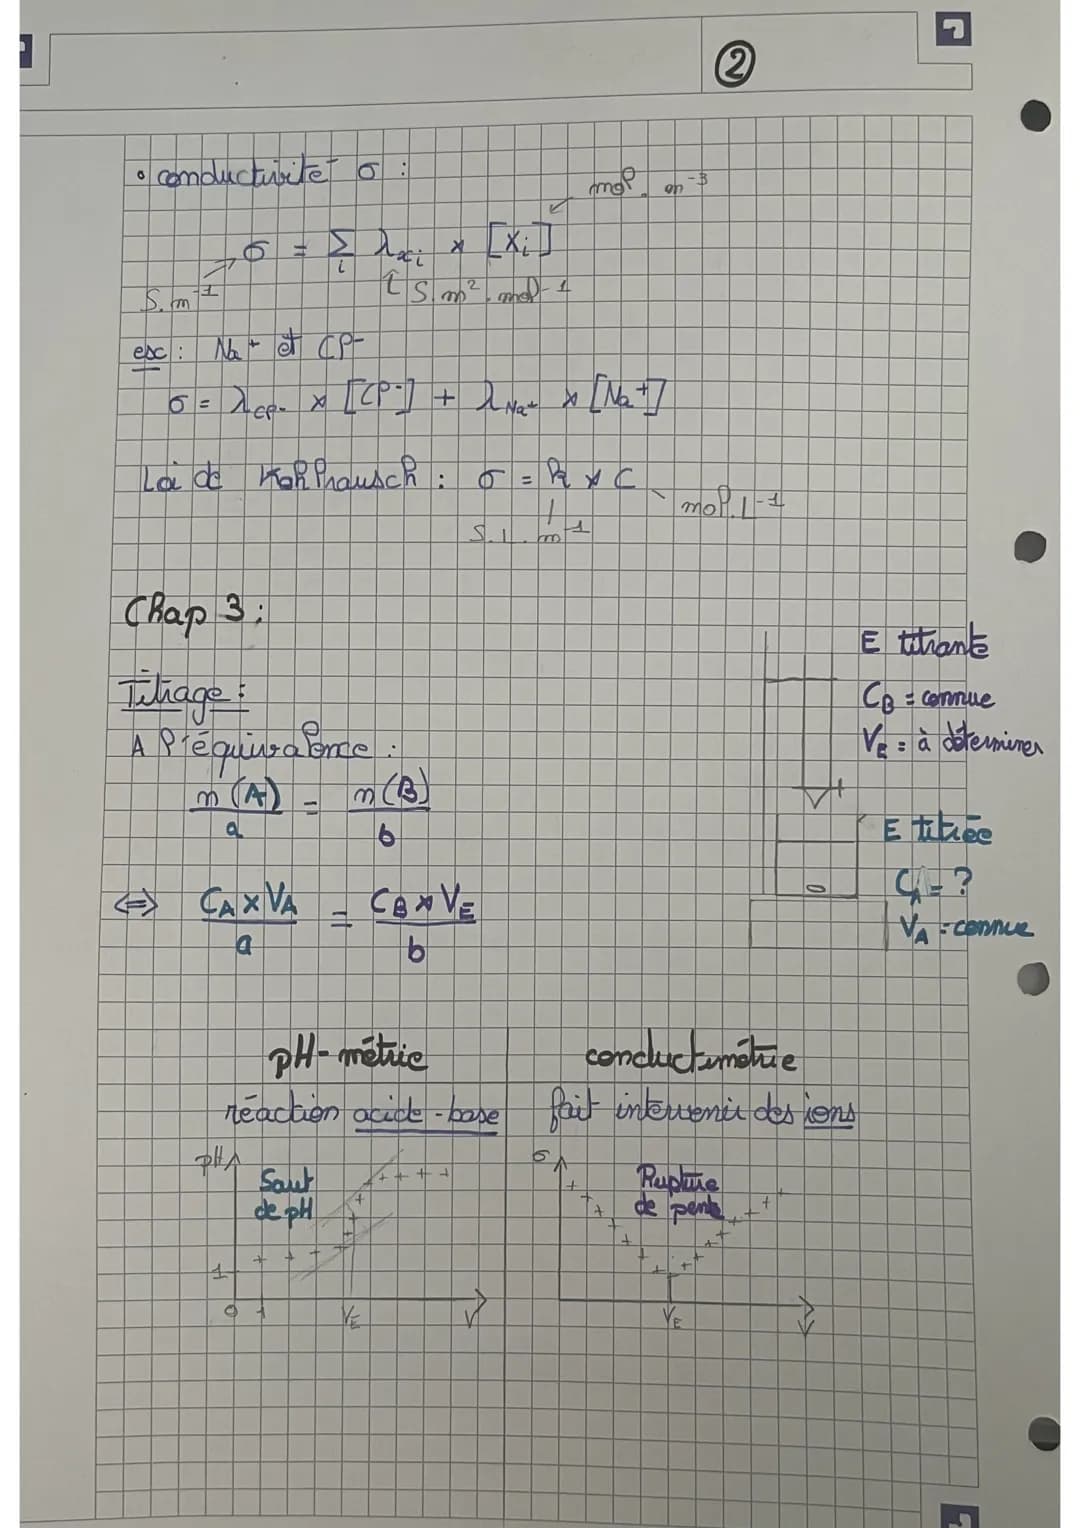 ②
• conductivité σ :
mol. m⁻³
σ = Σ λxᵢ × [Xᵢ]
i
S.m⁻¹
S.m².mol⁻¹
ex : Na⁺ et Cl⁻
σ = λCl⁻ × [Cl⁻] + λNa⁺ × [Na⁺]
Loi de Kohlrausch : σ = k × C
mol.L⁻¹
S.L.m⁻¹
Chap 3 :
Titrage :
A l'équivalence :
n(A)/a = n(B)/b
⇔ CA×VA/a = CB×VE/b
E titrante
CB = connue
VE = à déterminer
E titrée
CA = ?
VA = connue
pH-métrie
réaction acide-base
pH
Saut
de pH
1
0 1 VE V
conductimétrie
fait intervenir des ions
σ
Rupture
de pente
VE V